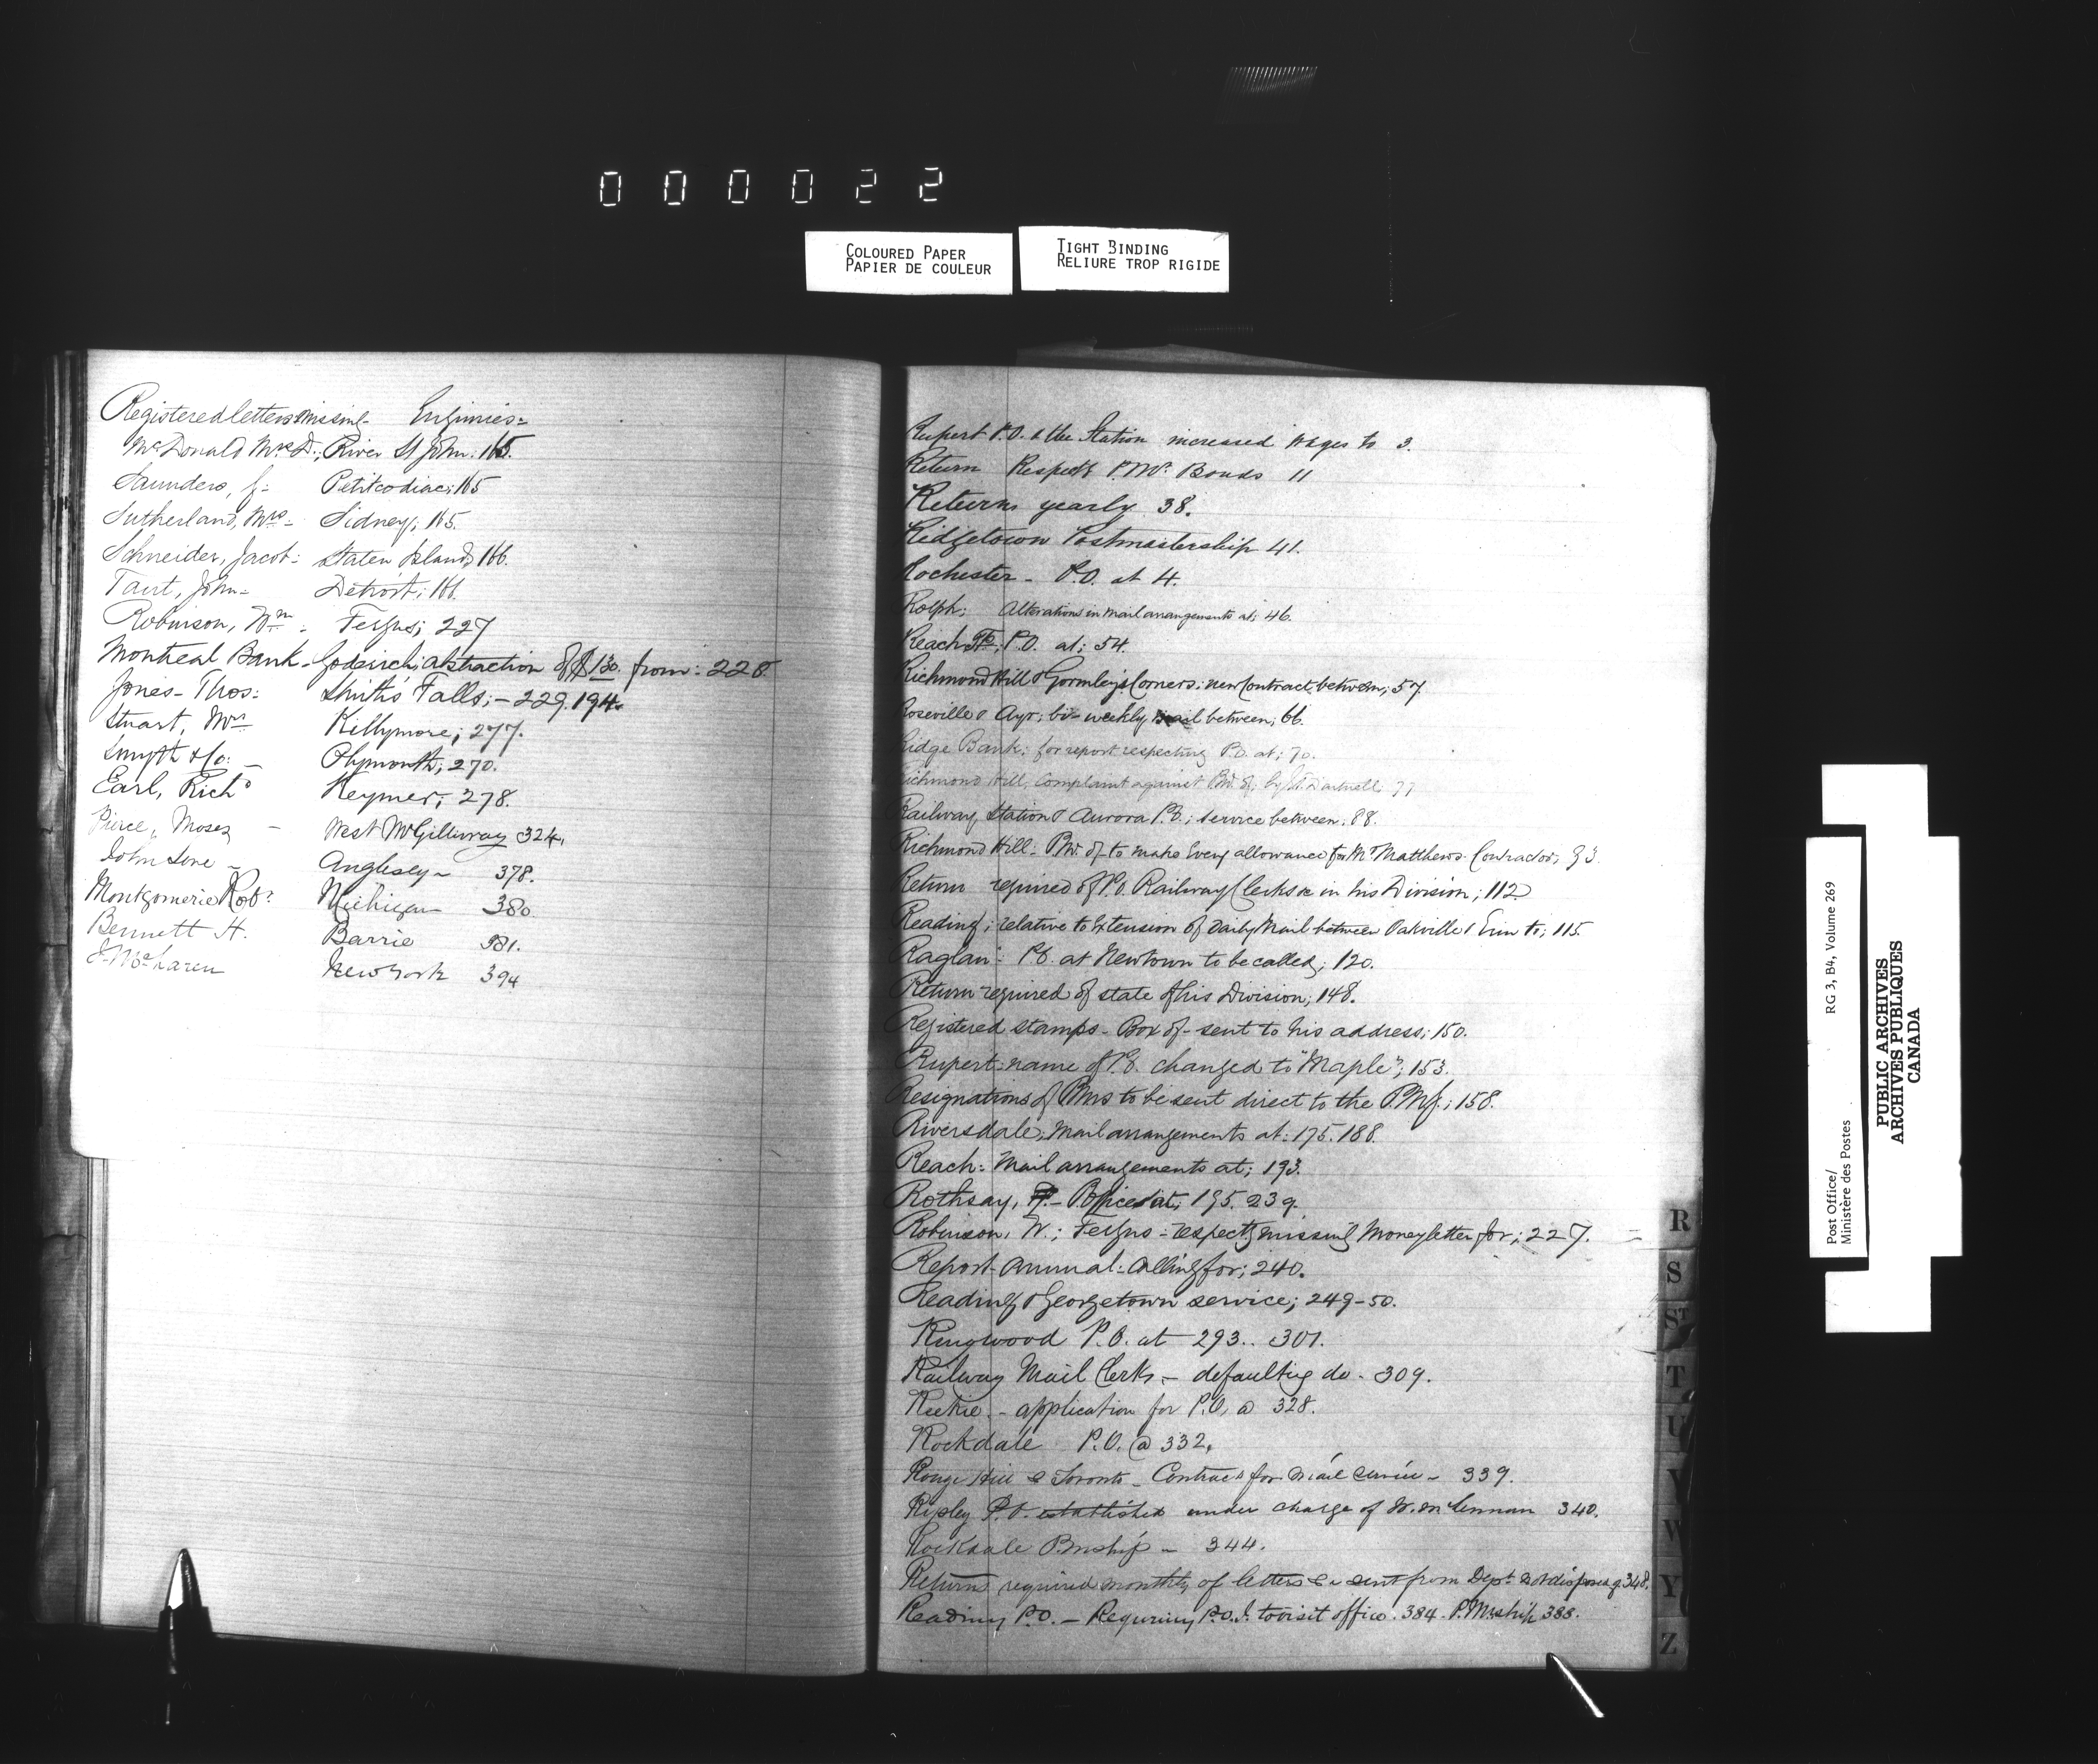 000022
COLOURED PAPER
PAPIER DE COULEUR
TIGHT BINDING
RELIURE TROP RIGIDE
Registered letters missing - Enquiries =
McDonald Mrs D.; River St John: 165.
Saunders, J: Petitcodiac; 165
Sutherland, Mrs - Sidney; 165.
Schneider, Jacob: Staten Island; 166.
Tait, John - Detroit; 166.
Robinson, Wm: Fergus; 227
Montreal Bank - Goderich; abstraction of $130. from: 228
Jones - Thos: Smith's Falls; - 229. 194.
Stuart, Mrs Killymore; 277.
Smyth & Co: - Plymouth; 270.
Earl, Richd Keymer; 278.
Pierce, Moses - West McGillivray 324.
John Lone - Anglesey - 378.
Montgomerie Robt Michigan 380
Bennett H. Barrie 381.
J. McLaren New York 394
Rupert P.O. & the Station increased wages to 3.
Return Respectg P.Mr. Bonds 11
Returns yearly 38.
Ridgetown Postmastership 41.
Rochester - P.O. at 4.
Rolph; Alterations in mail arrangements at; 46.
Reach Tp; P.O. at; 54.
Richmond Hill & Gormley's Corners; new Contract between; 57
Roseville & Ayr; bi-weekly mail between; 66.
Ridge Bank; for report respecting P.O. at; 70.
Richmond Hill, Complaint against P.M. of, by Dartnell; 77
Railway Station & Aurora P.O.; service between: 88.
Richmond Hill: P.M. of - to make every allowance for Mr Matthews Contractor; 93.
Return required of P.O. Railway Clerks &c in his Division; 112
Reading; relative to Extension of Daily Mail between Oakville & Erin to; 115
Raglan: P.O. at Newtown to be called; 120.
Return required of state of his Division; 148.
Registered stamps - Box of - sent to his address; 150.
Rupert: name of P.O. changed to "Maple"; 153.
Resignations of P.Mrs to be sent direct to the P.M.G.; 158.
Riversdale; Mail arrangements at: 175. 188.
Reach: Mail arrangements at; 193.
Rothsay, - P. Office at; 195. 239.
Robinson, W.; Fergus - respectg missing Money letter for; 227.
Report - Annual: Calling for; 240.
Reading & Georgetown service; 249-50.
Ringwood P.O. at 293.. 301.
Railway Mail Clerks - defaulting do - 309.
Reekie - application for P.O. @ 328.
Rockdale P.O. @ 332.
Rouge Hill & Toronto - Contract for Mail Service - 339.
Ripley P.O. established under charge of McLennan 340.
Rockdale P.Mship - 344.
Returns required monthly of letters &c sent from Dept not disposed of 348.
Reading P.O. - Requiring P.O.I. to visit office. 384. P.Mship 388.
R
S
ST
T
U
V
W
Y
Z
Post Office/ RG 3, B4, Volume 269
Ministère des Postes
PUBLIC ARCHIVES
ARCHIVES PUBLIQUES
CANADA